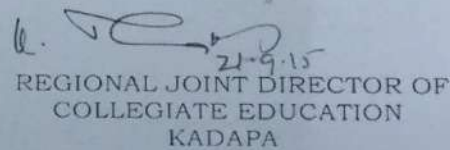 21-9-15
REGIONAL JOINT DIRECTOR OF
COLLEGIATE EDUCATION
KADAPA